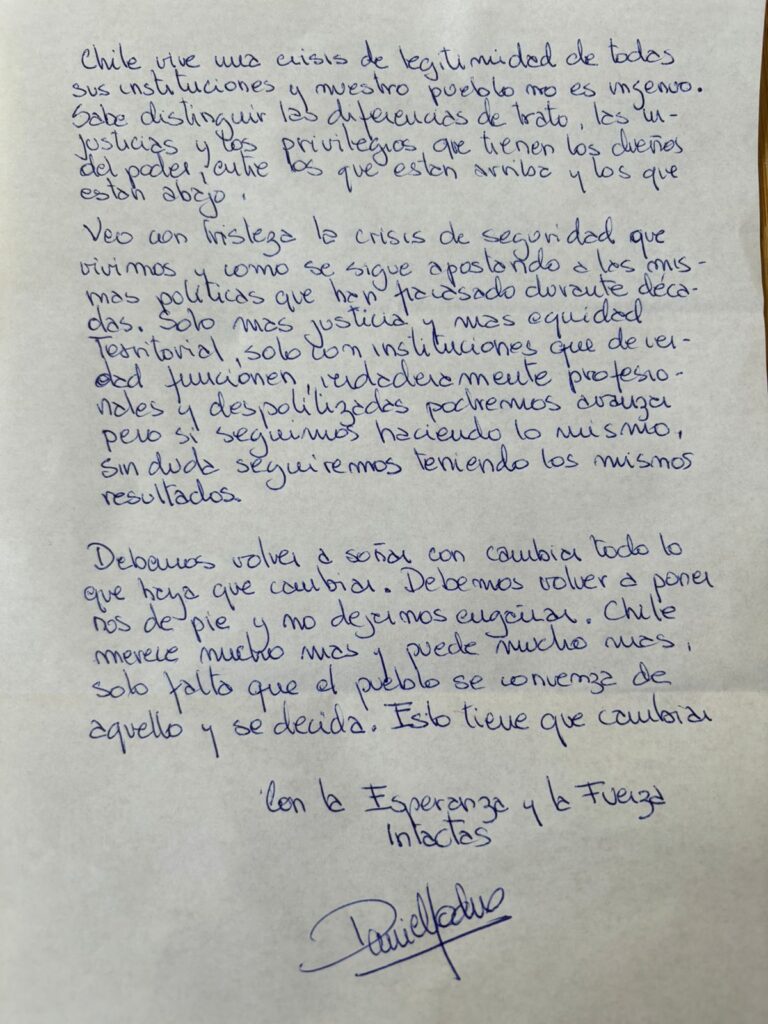 Chile vive una crisis de legitimidad de todas
sus instituciones y nuestro pueblo no es ingenuo.
Sabe distinguir las diferencias de trato, las in-
justicias y los privilegios, que tienen los dueños
del poder, entre los que estan arriba y los que
estan abajo.
Veo con tristeza la crisis de seguridad que
vivimos y como se sigue apostando a las mis-
mas politicas que han fracasado durante déca-
das. Solo mas justicia, y mas equidad
Territorial, solo con instituciones que de ver-
dad funcionen, verdaderamente profesio-
nales y despolitizadas podremos avanzar
pero si seguimos haciendo lo mismo,
sin duda seguiremos teniendo los mismos
resultados.
Debemos volver a soñar con cambiar todo lo
que haya que cambiar. Debemos volver a poner
nos de pie y no dejarnos engañar. Chile
merece mucho mas y puede mucho mas,
solo falta que el pueblo se convenza de
aquello y se decida. Esto tiene que cambiar
Con la Esperanza y la Fuerza
Intactas
Daniel Jadue